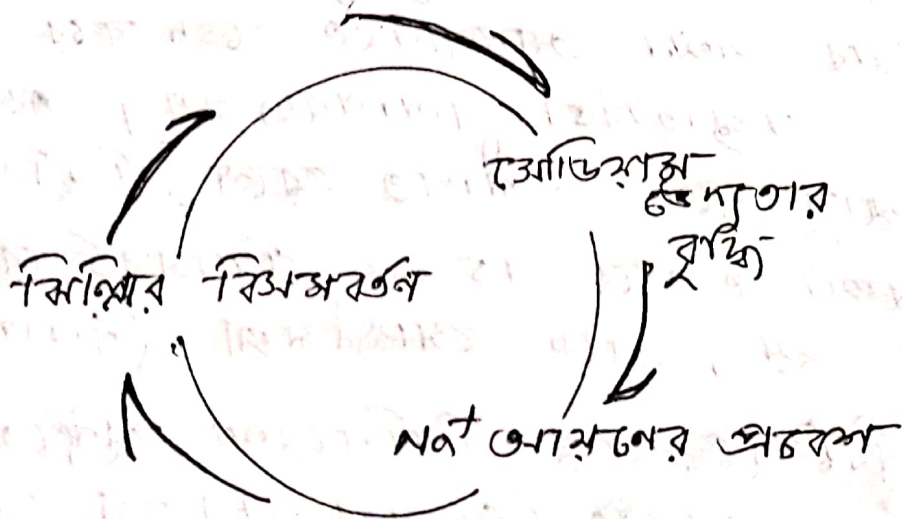 সোডিয়াম
ভেদ্যতার
বৃদ্ধি
ঝিল্লির বিসমবর্তন
Na⁺ আয়ণের প্রবেশ